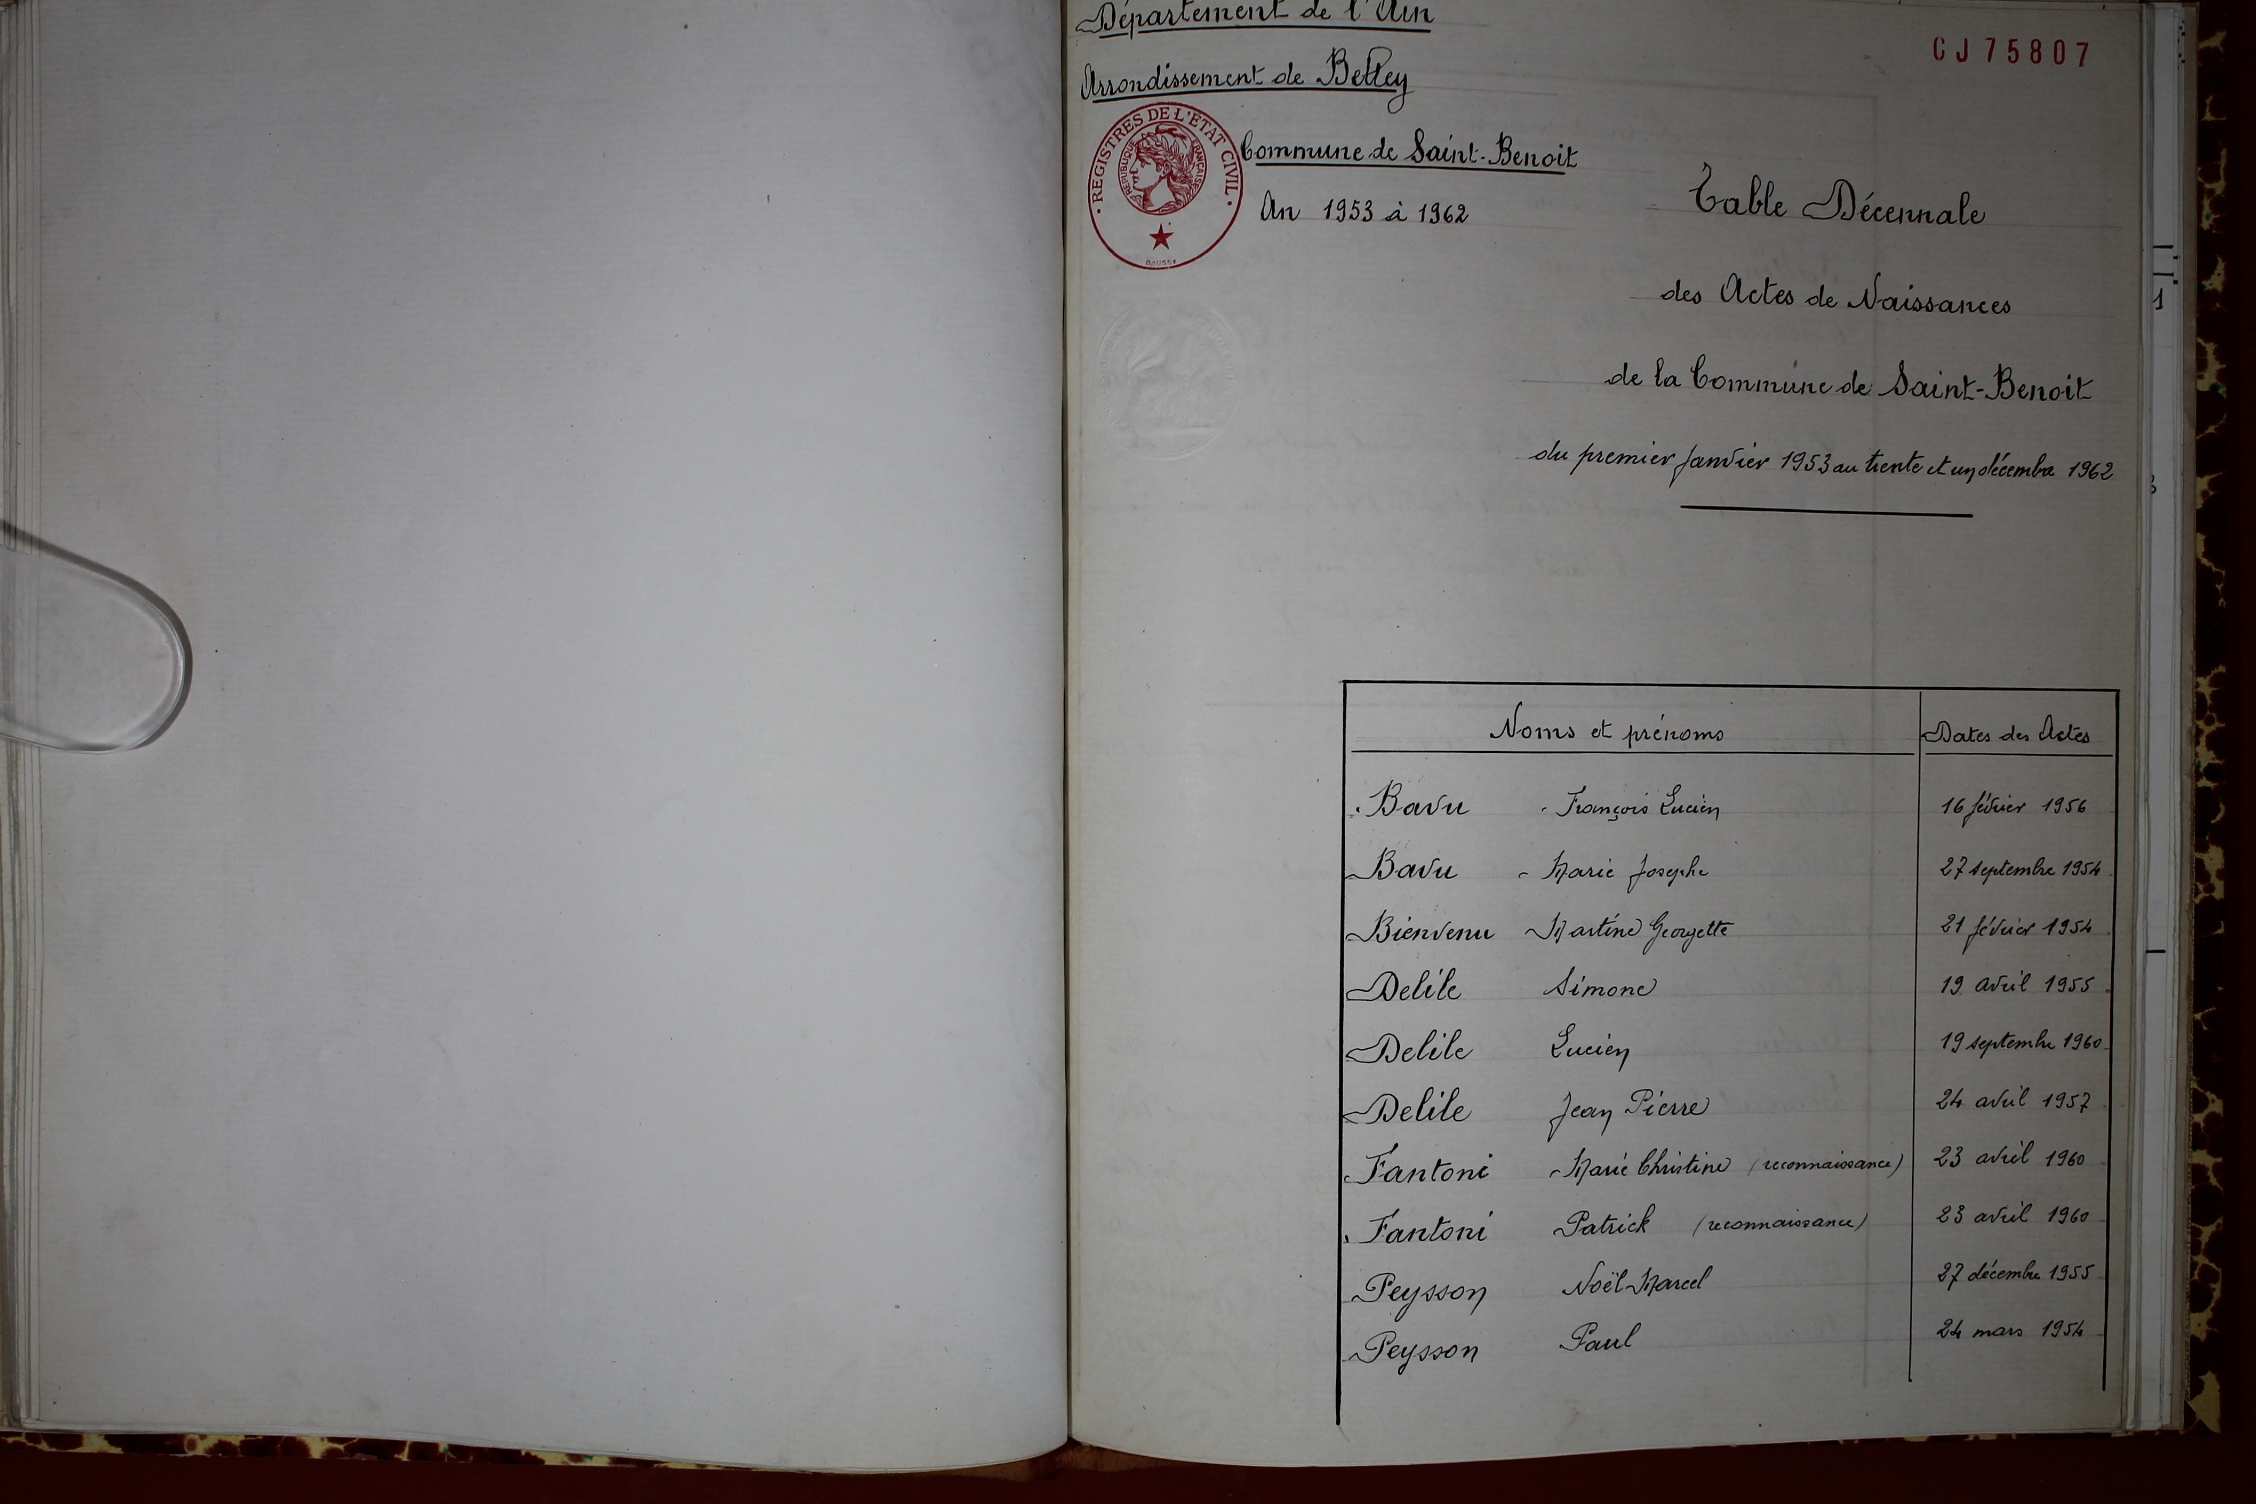 Département de l'Ain
CJ75807
Arrondissement de Belley
REGISTRES DE L'ÉTAT CIVIL
RÉPUBLIQUE FRANÇAISE
Commune de Saint-Benoit
An 1953 à 1962
Table Décennale
des Actes de Naissances
de la Commune de Saint-Benoit
du premier Janvier 1953 au trente et un décembre 1962
Noms et prénoms Dates des Actes
Bavu François Lucien 16 février 1956
Bavu Marie Josephe 27 septembre 1954
Bienvenu Martine Georgette 21 février 1954
Delile Simone 19 avril 1955
Delile Lucien 19 septembre 1960
Delile Jean Pierre 24 avril 1957
Fantoni Marie Christine (reconnaissance) 23 avril 1960
Fantoni Patrick (reconnaissance) 23 avril 1960
Peysson Noël Marcel 27 décembre 1955
Peysson Paul 24 mars 1954